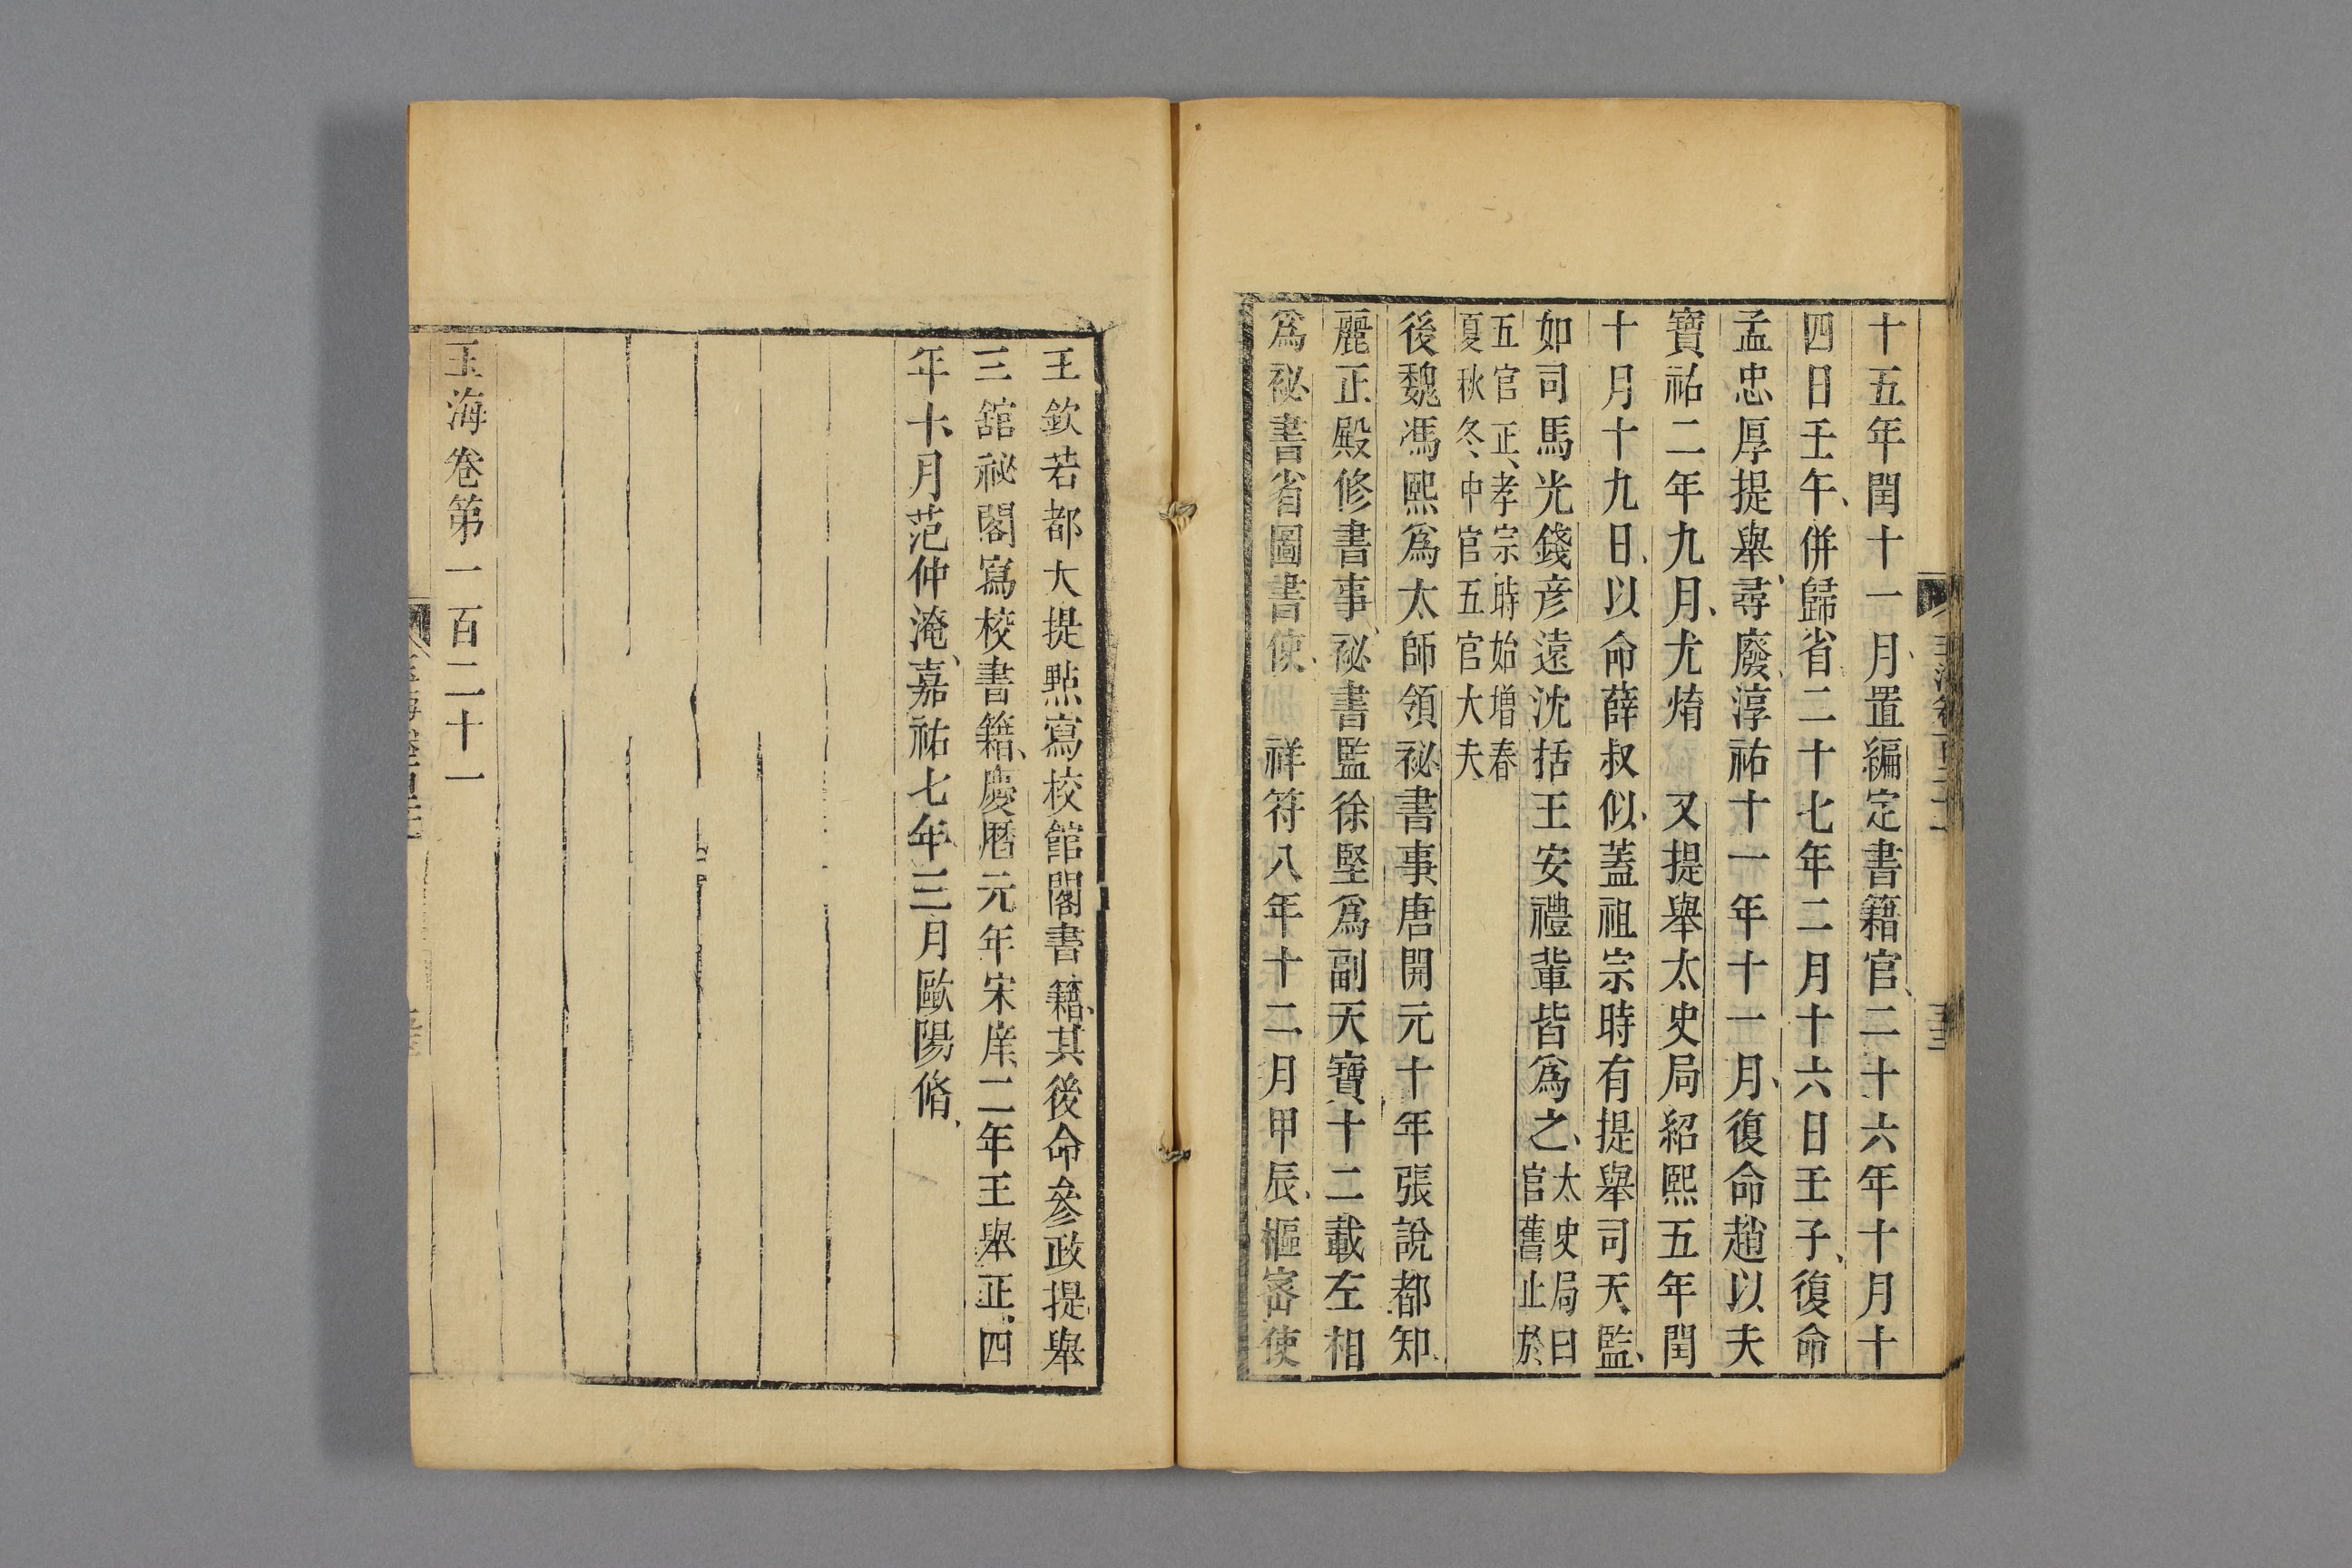 十五年閏十一月置編定書籍官二十六年十月十
四日壬午併歸省二十七年二月十六日壬子復命
孟忠厚提舉尋廢淳祐十一年十一月復命趙以夫
寶祐二年九月尤焴　又提舉太史局紹熙五年閏
十月十九日以命薛叔似蓋祖宗時有提舉司天監
如司馬光錢彥遠沈括王安禮輩皆爲之太史局曰官舊止於
五官正孝宗時始增春夏秋冬中官五官大夫
後魏馮熙爲太師領祕書事唐開元十年張說都知
麗正殿修書事祕書監徐堅爲副天寶十二載左相
爲祕書省圖書使　祥符八年十二月甲辰樞密使
王欽若都大提點寫校館閣書籍其後命參政提舉
三舘祕閣寫校書籍慶曆元年宋庠二年王舉正四
年十月范仲淹嘉祐七年三月歐陽脩
玉海卷第一百二十一